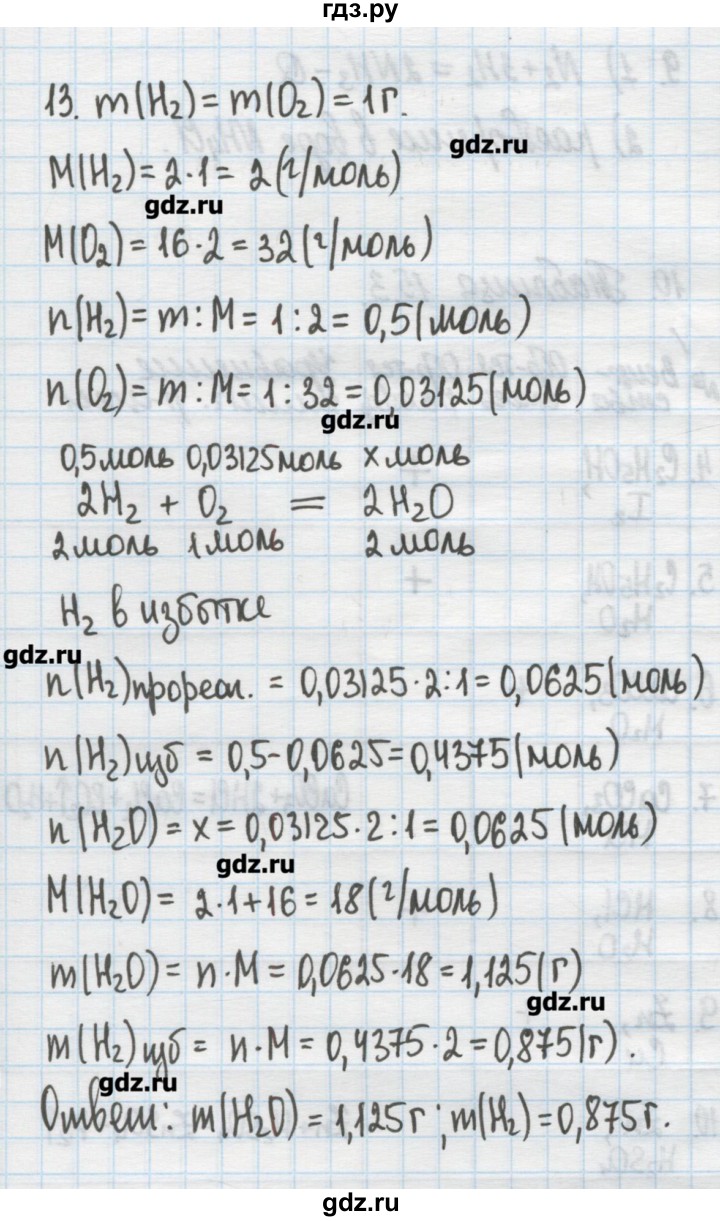 гдз.ру
13. m(H₂)=m(O₂)=1г.
gdz.ru
M(H₂)=2·1=2(г/моль)
gdz.ru
M(O₂)=16·2=32(г/моль)
n(H₂)=m:M=1:2=0,5(моль)
n(O₂)=m:M=1:32=0,03125(моль)
gdz.ru
0,5моль 0,03125моль x моль
2H₂ + O₂ = 2H₂O
2моль 1моль 2моль
H₂ в избытке
gdz.ru
n(H₂)прореаг. = 0,03125·2:1=0,0625(моль)
n(H₂)изб = 0,5-0,0625=0,4375(моль)
n(H₂O)=x=0,03125·2:1=0,0625(моль)
gdz.ru
M(H₂O)= 2·1+16=18(г/моль)
m(H₂O)= n·M=0,0625·18=1,125(г)
gdz.ru
m(H₂)изб = n·M=0,4375·2=0,875(г).
gdz.ru
Ответ: m(H₂O)=1,125г; m(H₂)=0,875г.
gdz.ru